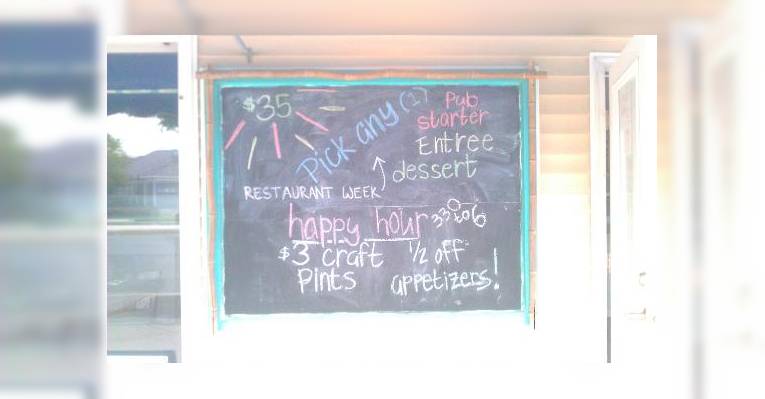 $35
Pick any (1)
Pub
starter
Entree
dessert
RESTAURANT WEEK
happy hour 330 to 6
$3 craft
Pints
1/2 off
appetizers!